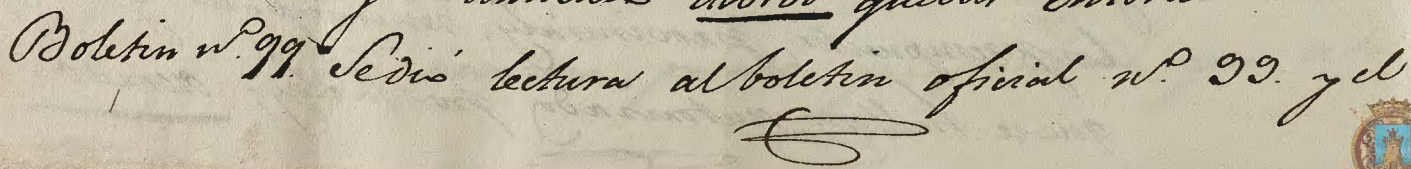 quedar
Boletin nº. 99. Sedió lectura al boletin oficial nº. 99. y el